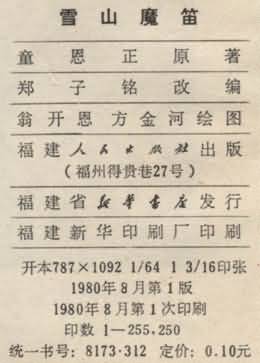 雪山魔笛
童恩正原著
郑子铭改编
翁开恩 方金河绘图
福建人民出版社出版
(福州得贵巷27号)
福建省新华书店发行
福建新华印刷厂印刷
开本787×1092 1/64 1 3/16印张
1980年8月第1版
1980年8月第1次印刷
印数 1—255,250
统一书号: 8173·312 定价: 0.10元